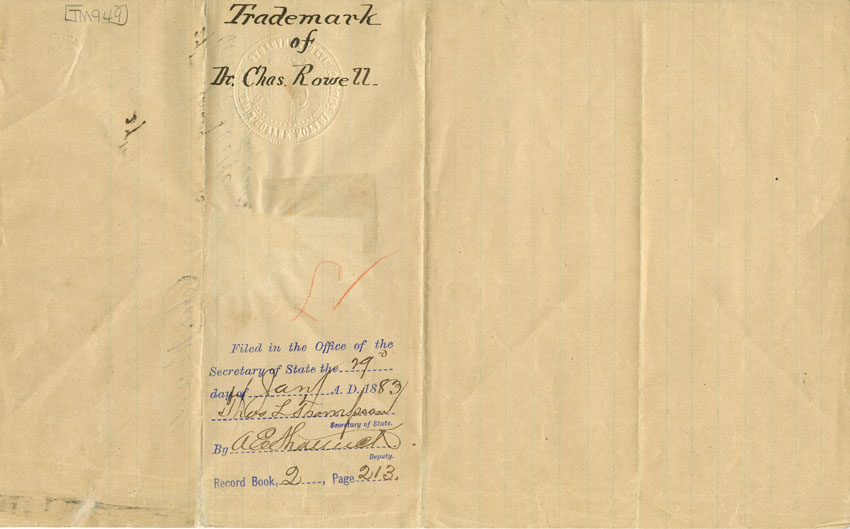 TM949
Trademark
of
Dr. Chas. Rowell.
Filed in the Office of the
Secretary of State the 29
day of Jan'y A. D. 1883
Thos L Thompson
Secretary of State.
By A E Shattuck
Deputy.
Record Book, 2, Page 213.